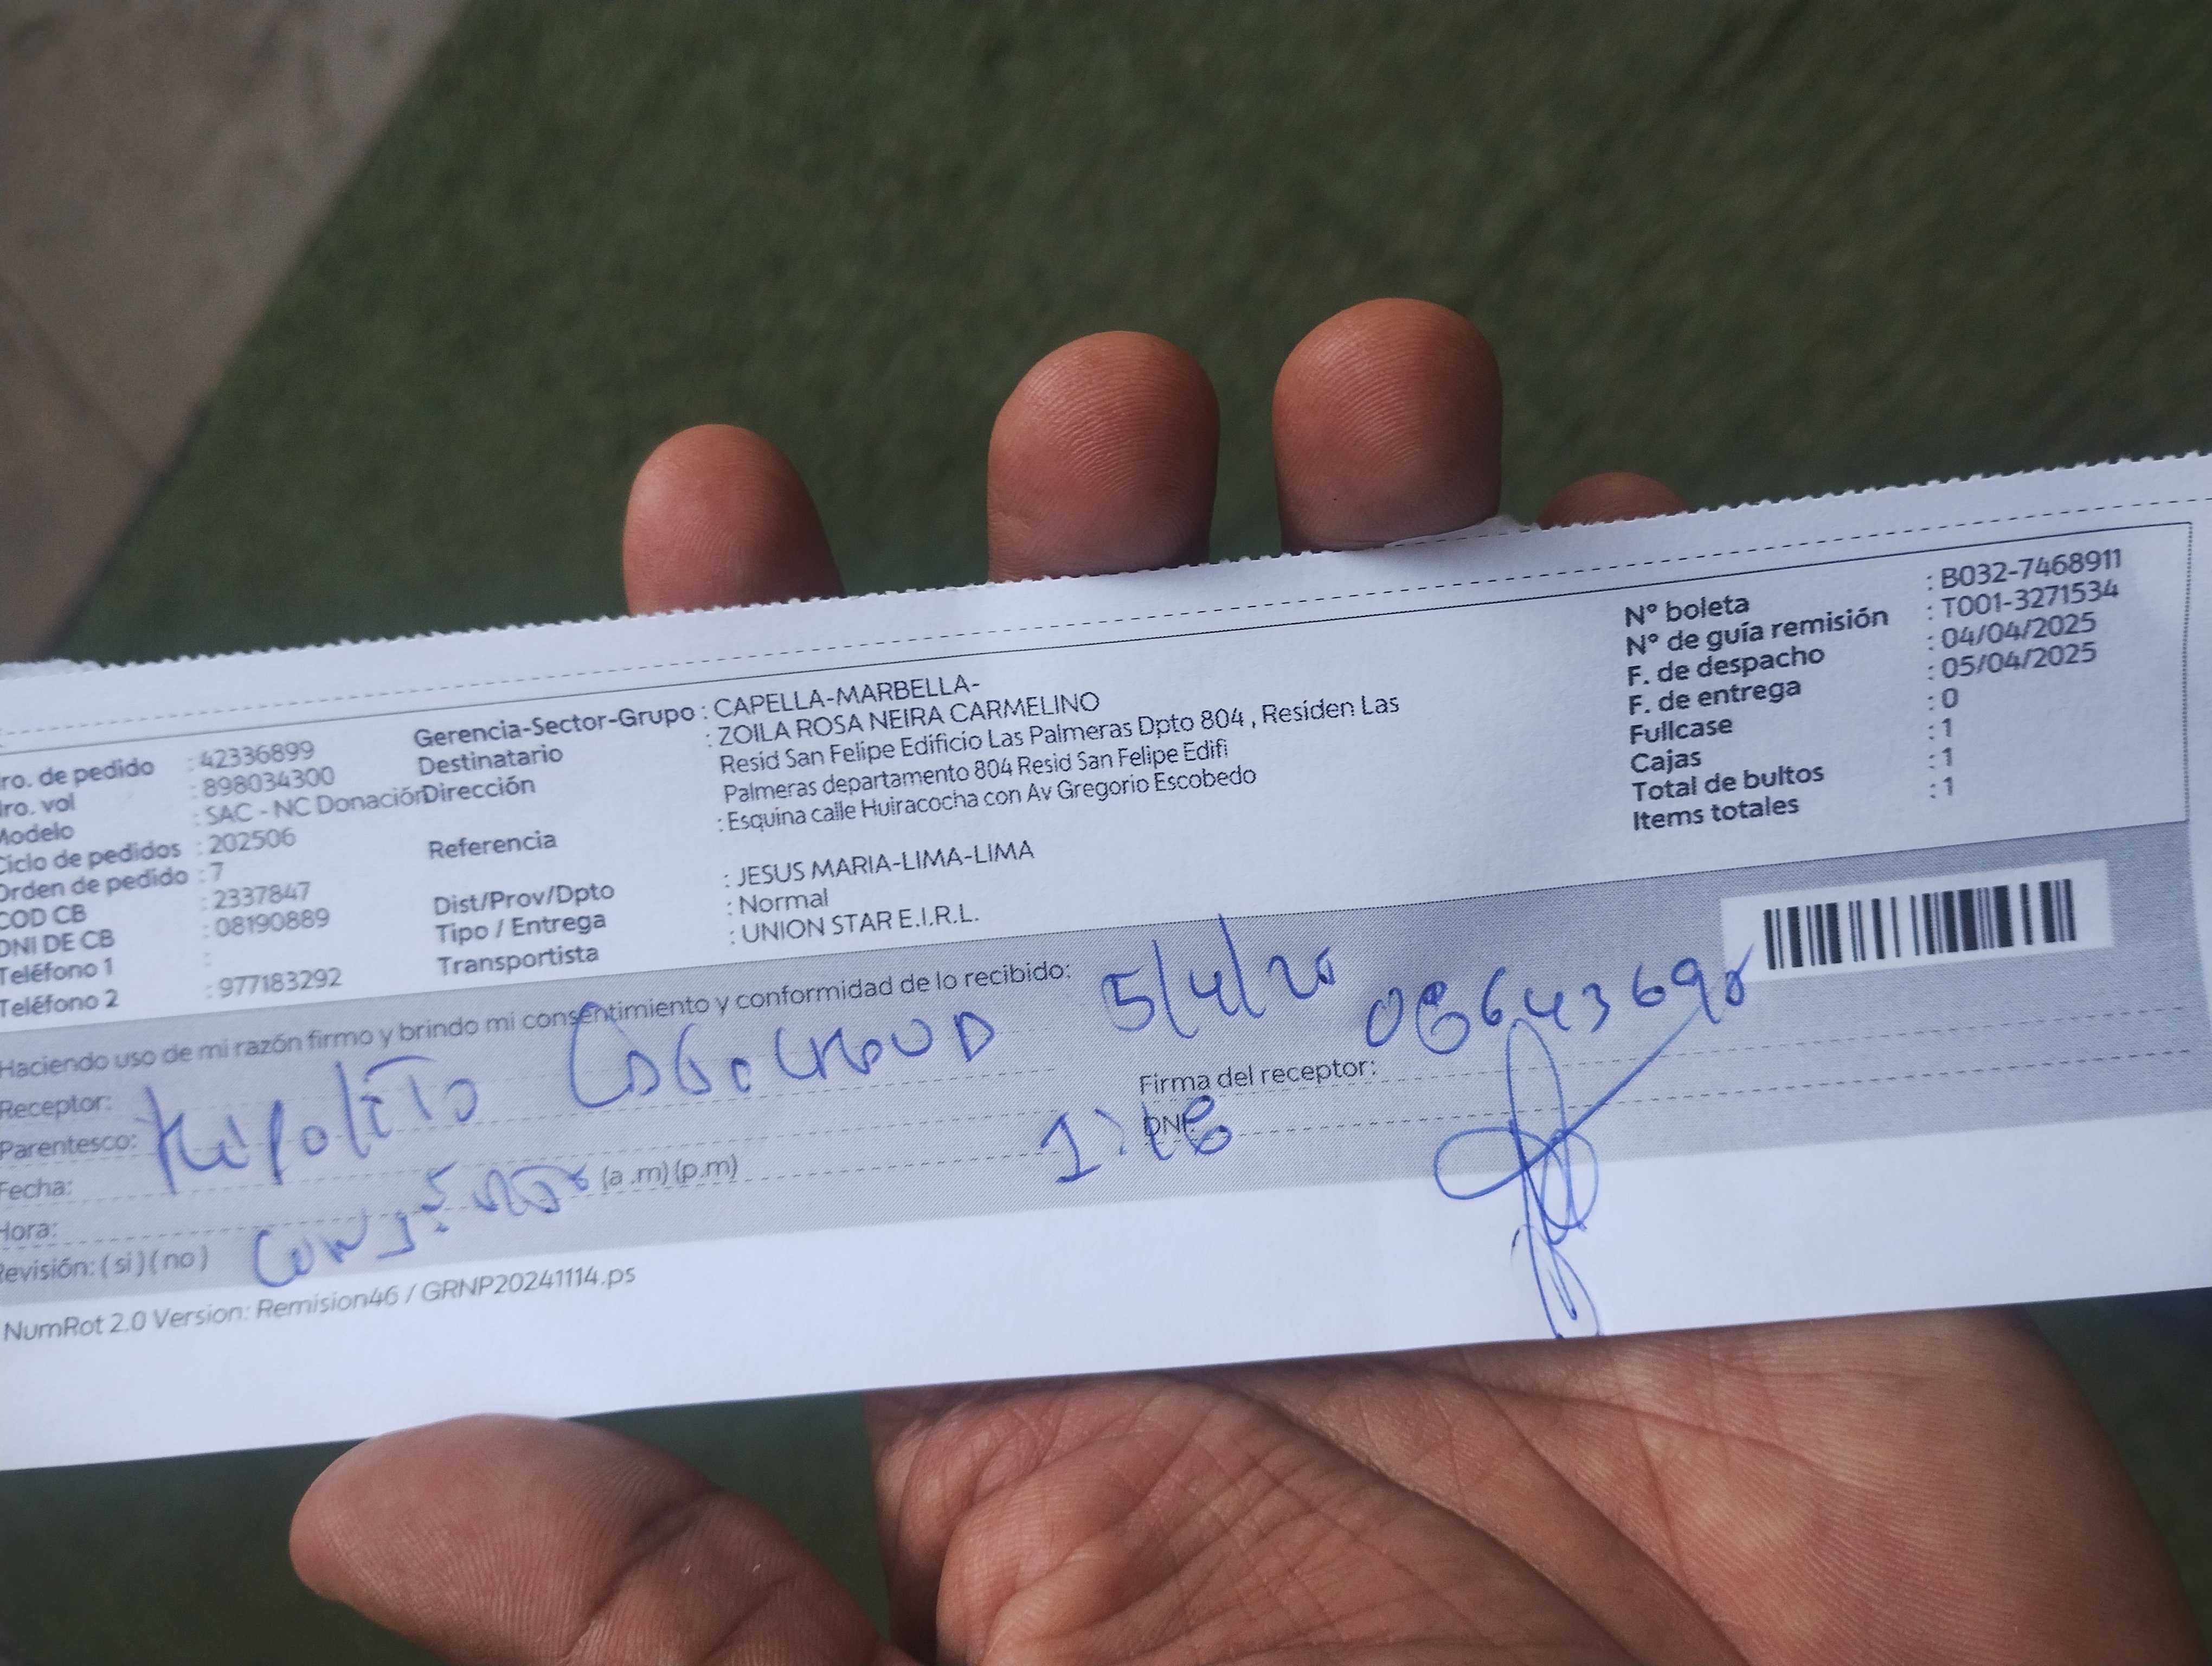 ro. de pedido : 42336899
ro. vol : 898034300
Modelo : SAC - NC Donación
Ciclo de pedidos : 202506
Orden de pedido : 7
COD CB : 2337847
DNI DE CB : 08190889
Teléfono 1 :
Teléfono 2 : 977183292
Gerencia-Sector-Grupo : CAPELLA-MARBELLA-
Destinatario : ZOILA ROSA NEIRA CARMELINO
Dirección : Resid San Felipe Edificio Las Palmeras Dpto 804 , Residen Las
Palmeras departamento 804 Resid San Felipe Edifi
Referencia : Esquina calle Huiracocha con Av Gregorio Escobedo
Dist/Prov/Dpto : JESUS MARIA-LIMA-LIMA
Tipo / Entrega : Normal
Transportista : UNION STAR E.I.R.L.
N° boleta : B032-7468911
N° de guía remisión : T001-3271534
F. de despacho : 04/04/2025
F. de entrega : 05/04/2025
Fullcase : 0
Cajas : 1
Total de bultos : 1
Items totales : 1
Haciendo uso de mi razón firmo y brindo mi consentimiento y conformidad de lo recibido:
5/4/25
Receptor:
Parentesco: Hipolito
Fecha:
Hora: (a .m) (p.m)
Revisión: ( si ) ( no )
Firma del receptor:
DNI:
1:18
NumRot 2.0 Version: Remision46 / GRNP20241114.ps